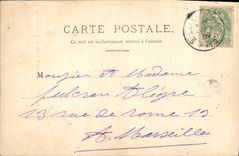 CARTE POSTALE
Ce côté est exclusivement réservé à l'adresse
Monsieur et Madame
Fulcran Alègre
13 rue de rome 13
A. Marseille